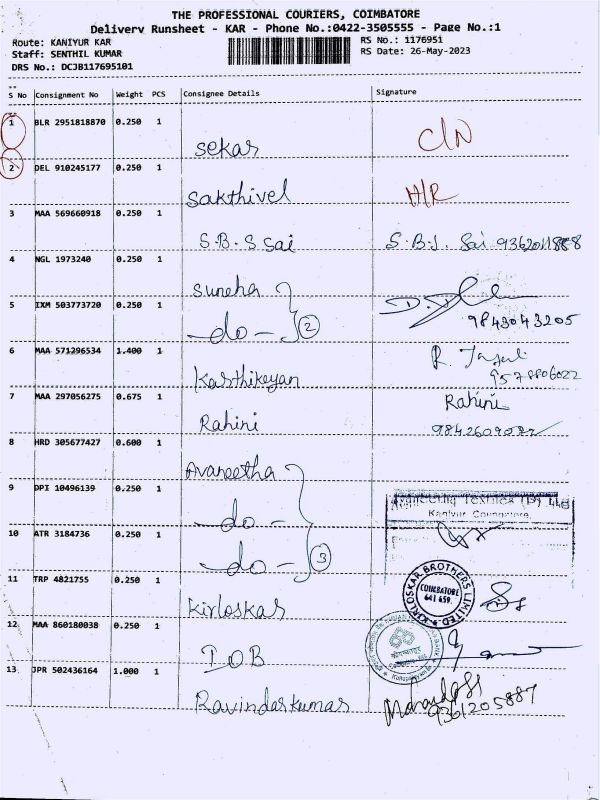 THE PROFESSIONAL COURIERS, COIMBATORE
Delivery Runsheet - KAR - Phone No.:0422-3505555 - Page No.:1
Route: KANIYUR KAR
Staff: SENTHIL KUMAR
DRS No.: DCJB117695101
RS No.: 1176951
RS Date: 26-May-2023
S No Consignment No Weight PCS Consignee Details Signature
1 BLR 2951818870 0.250 1 Sekar C/N
2 DEL 910245177 0.250 1 Sakthivel
3 MAA 569660918 0.250 1 S.B.S Sai S.B.S. Sai
4 NGL 1973240 0.250 1 Suneha
5 IXM 503773720 0.250 1 -do- 2 9843043205
6 MAA 571296534 1.400 1 Karthikeyan
9578806022
7 MAA 297056275 0.675 1 Rahini Rahini
8 HRD 305677427 0.600 1 Avaneetha
9 DPI 10496139 0.250 1 -do-
Kaniyur Coimbatore.
10 ATR 3184736 0.250 1 -do- 3
11 TRP 4821755 0.250 1 Kirloskar
KIRLOSKAR BROTHERS LIMITED
COIMBATORE
641 659.
12 MAA 860180038 0.250 1 IOB
13 JPR 502436164 1.000 1 Ravindarkumar
9361205887